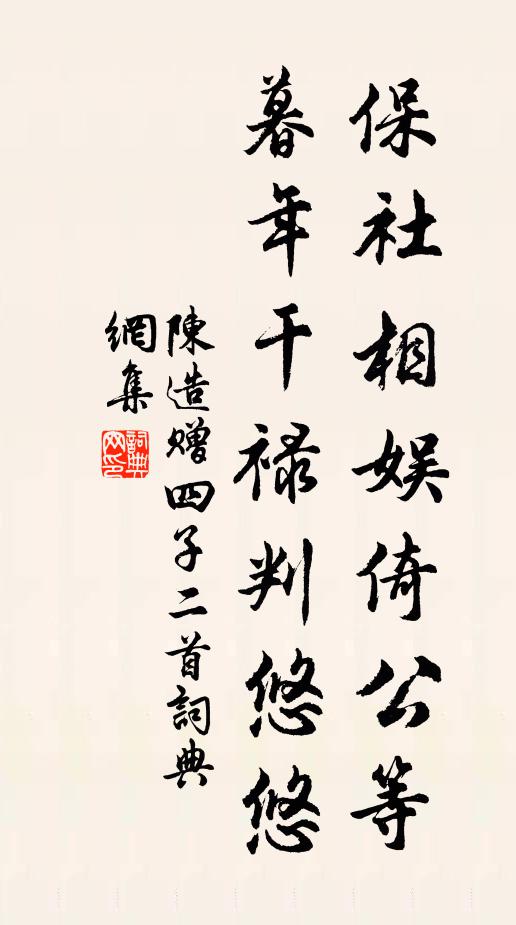 保社相娱倚公等
暮年干禄判悠悠
陳造赠四子二首詞典
網集
詞典网印